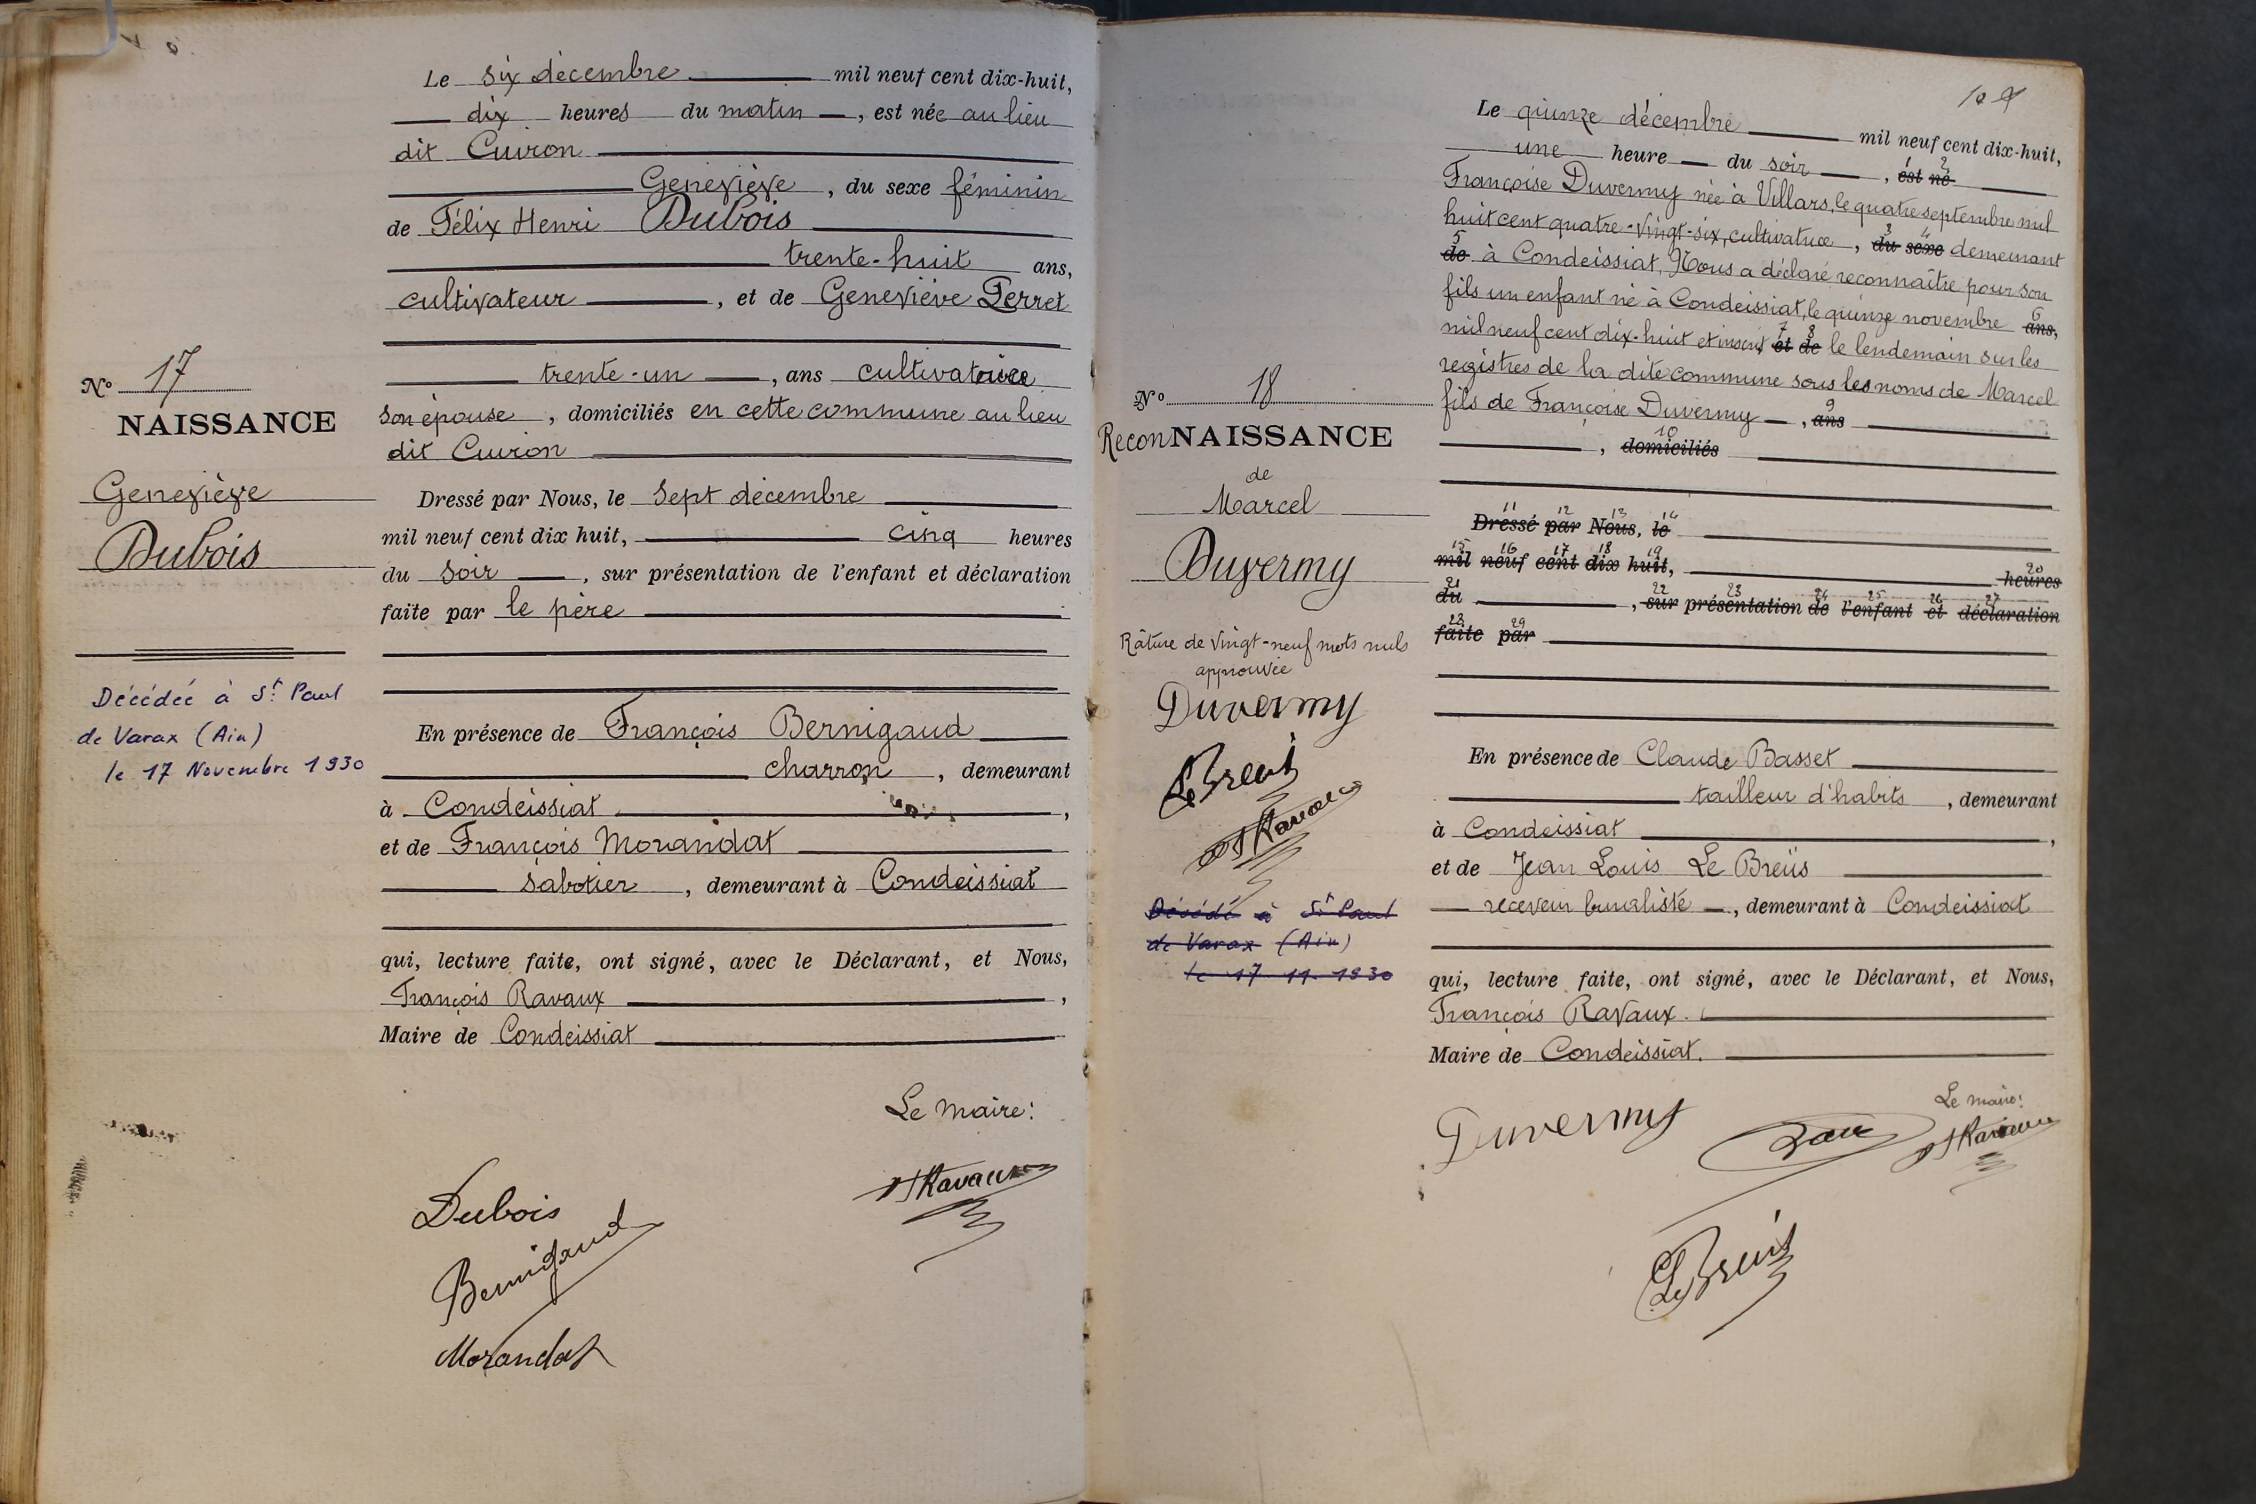 Le six décembre mil neuf cent dix-huit,
dix heures du matin, est née au lieu
dit Cuiron
Geneviève, du sexe féminin
de Félix Henri Dubois
trente-huit ans,
cultivateur, et de Geneviève Perret
trente-un, ans cultivatrice
son épouse, domiciliés en cette commune au lieu
dit Cuiron
Dressé par Nous, le sept décembre
mil neuf cent dix huit, cinq heures
du soir, sur présentation de l'enfant et déclaration
faite par le père
En présence de François Bernigaud
charron, demeurant
à Condeissiat,
et de François Morandat
sabotier, demeurant à Condeissiat
qui, lecture faite, ont signé, avec le Déclarant, et Nous,
François Ravaux,
Maire de Condeissiat
Le maire:
Dubois
Ravaux
Bernigaud
Morandat
No 17
NAISSANCE
Geneviève
Dubois
Décédée à St Paul
de Varax (Ain)
le 17 Novembre 1930
Le quinze décembre mil neuf cent dix-huit,
une heure du soir, est né 1 2
Françoise Duvermy née à Villars, le quatre septembre mil
huit cent quatre-vingt-six, cultivatrice, du sexe 3 4 demeurant
de 5 à Condeissiat, Nous a déclaré reconnaître pour son
fils un enfant né à Condeissiat, le quinze novembre ans, 6
mil neuf cent dix-huit et inscrit et de 7 8 le lendemain sur les
registres de la dite commune sous les noms de Marcel
fils de Françoise Duvermy, ans 9
, domiciliés 10
11 12 13 14
Dressé par Nous, le
15 16 17 18 19
mil neuf cent dix huit, heures 20
21 22 23 24 25 26 27
du, sur présentation de l'enfant et déclaration
28 29
faite par
En présence de Claude Basset
tailleur d'habits, demeurant
à Condeissiat,
et de Jean Louis Le Breüs
receveur buraliste, demeurant à Condeissiat
qui, lecture faite, ont signé, avec le Déclarant, et Nous,
François Ravaux.
Maire de Condeissiat.
Le maire:
Duvermy
Ravaux
Le Breüs
No 18
ReconNAISSANCE
de
Marcel
Duvermy
Râture de vingt-neuf mots nuls
approuvée
Duvermy
Le Breüs
Ravaux
Décédé à St Paul
de Varax (Ain)
le 17 11. 1930